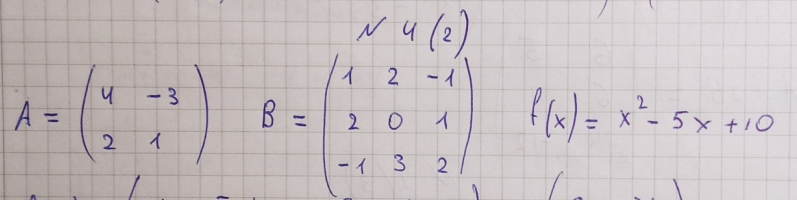 N 4 (2)
A = ( 4 -3 ; 2 1 ) B = ( 1 2 -1 ; 2 0 1 ; -1 3 2 ) f(x) = x² - 5x + 10